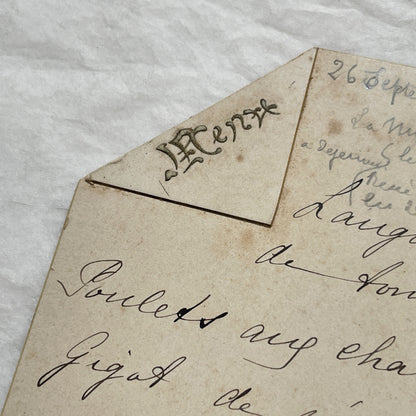 Menu
26 Septe
La M
a dejeuner
Langu
de ton
Poulets aux cha
Gigot de